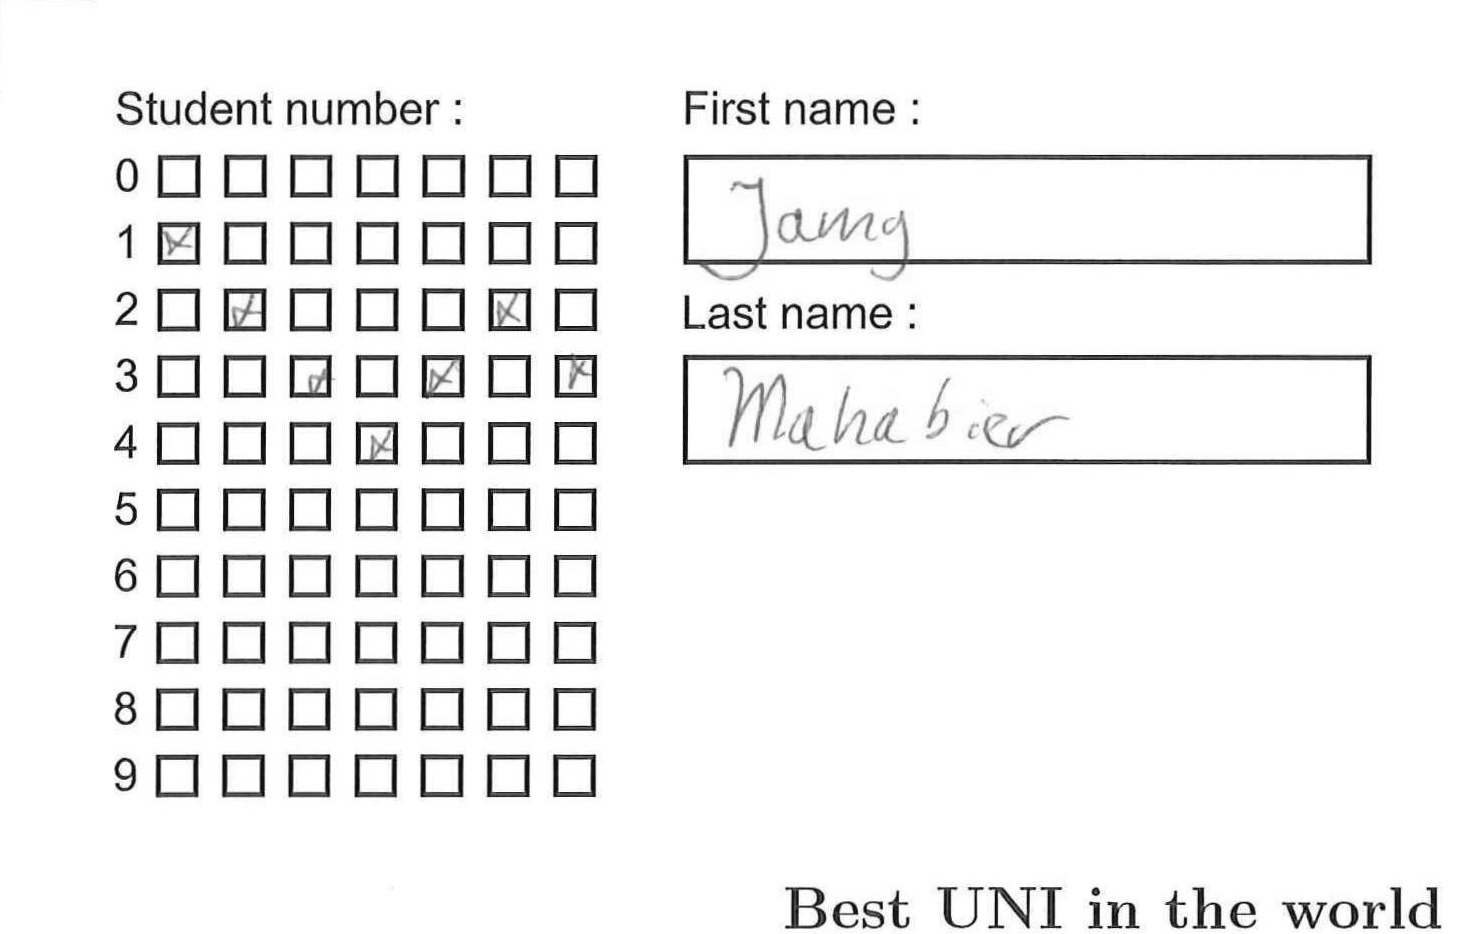 Student number :
0
1
2
3
4
5
6
7
8
9
First name :
Last name :
Mahabier
Best UNI in the world